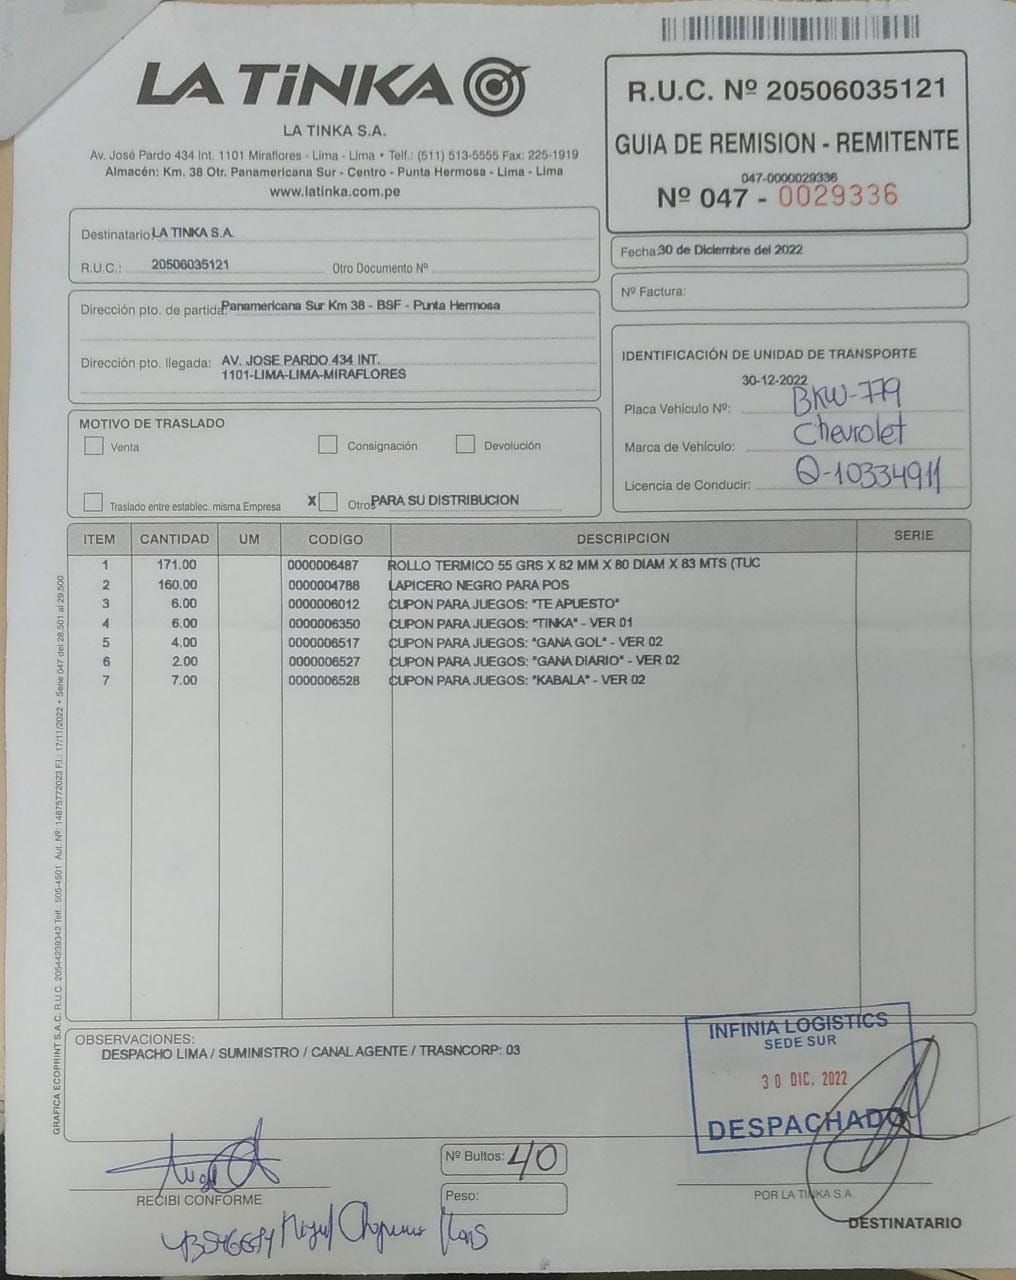 LA TiNKA
LA TINKA S.A.
Av. José Pardo 434 Int. 1101 Miraflores - Lima - Lima • Telf.: (511) 513-5555 Fax: 225-1919
Almacén: Km. 38 Otr. Panamericana Sur - Centro - Punta Hermosa - Lima - Lima
www.latinka.com.pe
R.U.C. Nº 20506035121
GUIA DE REMISION - REMITENTE
047-0000029336
Nº 047 - 0029336
Destinatario: LA TINKA S.A.
R.U.C.: 20506035121 Otro Documento Nº
Fecha: 30 de Diciembre del 2022
Nº Factura:
Dirección pto. de partida: Panamericana Sur Km 38 - BSF - Punta Hermosa
Dirección pto. llegada: AV. JOSE PARDO 434 INT.
1101-LIMA-LIMA-MIRAFLORES
IDENTIFICACIÓN DE UNIDAD DE TRANSPORTE
30-12-2022
Placa Vehículo Nº: BKW-779
Marca de Vehículo: Chevrolet
Licencia de Conducir: Q-10334911
MOTIVO DE TRASLADO
Venta Consignación Devolución
Traslado entre establec. misma Empresa X Otros PARA SU DISTRIBUCION
ITEM CANTIDAD UM CODIGO DESCRIPCION SERIE
1 171.00 0000006487 ROLLO TERMICO 55 GRS X 82 MM X 80 DIAM X 83 MTS (TUC
2 160.00 0000004788 LAPICERO NEGRO PARA POS
3 6.00 0000006012 CUPON PARA JUEGOS: "TE APUESTO"
4 6.00 0000006350 CUPON PARA JUEGOS: "TINKA" - VER 01
5 4.00 0000006517 CUPON PARA JUEGOS: "GANA GOL" - VER 02
6 2.00 0000006527 CUPON PARA JUEGOS: "GANA DIARIO" - VER 02
7 7.00 0000006528 CUPON PARA JUEGOS: "KABALA" - VER 02
GRAFICA ECOPRINT S.A.C. R.U.C. 20544239342 Telf.: 505-4501 Aut. Nº: 14875772023 F.I.: 17/11/2022 • Serie 047 del 28,501 al 29,500
OBSERVACIONES:
DESPACHO LIMA / SUMINISTRO / CANAL AGENTE / TRASNCORP: 03
INFINIA LOGISTICS
SEDE SUR
30 DIC. 2022
DESPACHADO
RECIBI CONFORME
Nº Bultos: 40
Peso:
POR LA TINKA S.A.
DESTINATARIO